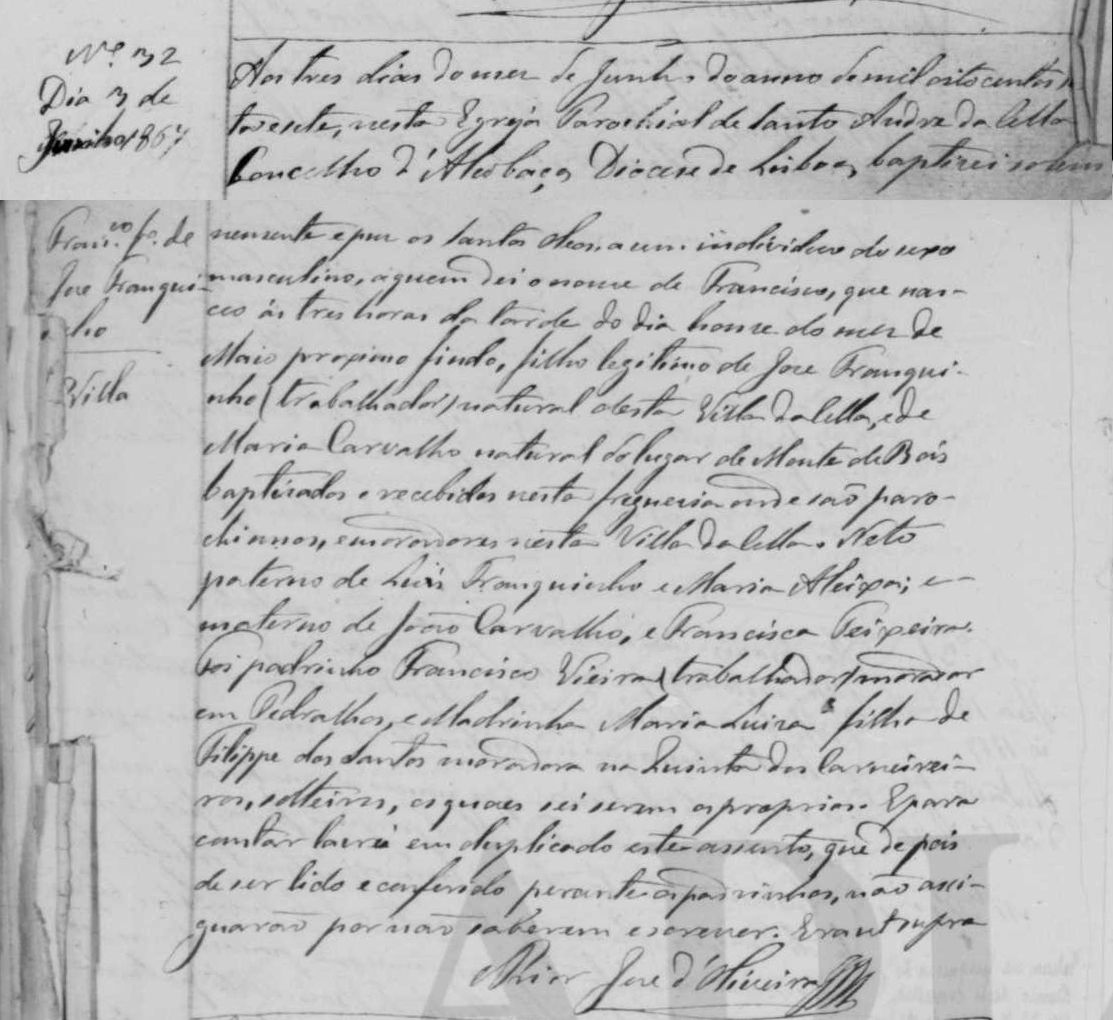 Nº 32
Dia 3 de
Junho 1867
Aos tres dias do mez de Junho do anno de mil oito centos se
ta e sete, nesta Egreja Parochial de Santo Andre da Cella
Concelho d'Alcobaça, Diocese de Lisboa, baptizei solem
Franco. fo. de
Jose Franqui-
nho
Villa
nemente e puz os Santos oleos, a um individuo do sexo
masculino, a quem dei o nome de Francisco, que nas-
ceo ás tres horas da tarde do dia honze do mez de
Maio proximo findo, filho legitimo de Jose Franqui-
nho (trabalhador) natural desta Villa da Cella, e de
Maria Carvalho natural do lugar de Monte de Bois
baptizados e recebidos nesta freguezia onde são paro-
chianos, e moradores nesta Villa da Cella. Neto
paterno de Luis Franquinho e Maria Aleixa; e-
materno de João Carvalho, e Francisca Teixeira.
Foi padrinho Francisco Vieira (trabalhador) morador
em Pedralhos, e Madrinha Maria Luiza filha de
Filippe dos Santos moradora na Quinta dos Carneirei-
ros, solteiros, os quaes sei serem os proprios. E para
constar lavrei em duplicado este assento, que depois
de ser lido e conferido perante os padrinhos, não assi-
gnarão por não saberem escrever. Era ut supra
O Prior Jose d'Oliveira
ADL